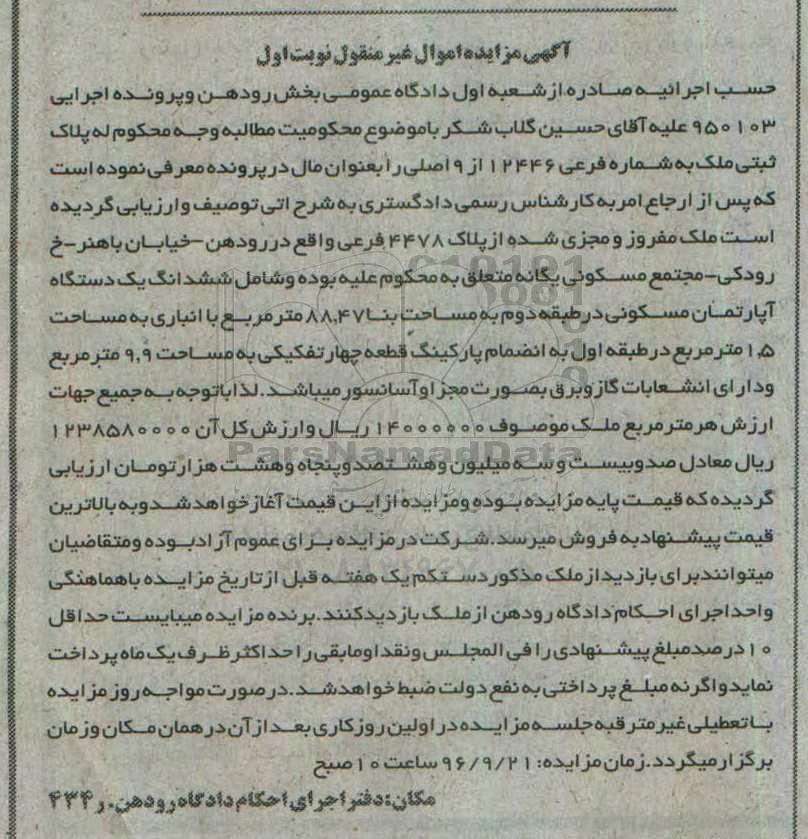 آگهی مزایده اموال غیر منقول نوبت اول
حسب اجرائیه صادره از شعبه اول دادگاه عمومی بخش رودهن و پرونده اجرایی
۹۵۰۱۰۳ علیه آقای حسین گلاب شکر با موضوع محکومیت مطالبه وجه محکوم له پلاک
ثبتی ملک به شماره فرعی ۱۲۴۴۶ از ۹ اصلی را بعنوان مال در پرونده معرفی نموده است
که پس از ارجاع امر به کارشناس رسمی دادگستری به شرح اتی توصیف و ارزیابی گردیده
است ملک مفروز و مجزی شده از پلاک ۴۴۷۸ فرعی واقع در رودهن-خیابان باهنر-خ
رودکی-مجتمع مسکونی یگانه متعلق به محکوم علیه بوده و شامل ششدانگ یک دستگاه
آپارتمان مسکونی در طبقه دوم به مساحت بنا ۸۸,۴۷ متر مربع با انباری به مساحت
۱,۵ متر مربع در طبقه اول به انضمام پارکینگ قطعه چهار تفکیکی به مساحت ۹,۹ متر مربع
و دارای انشعابات گاز و برق بصورت مجزا و آسانسور میباشد. لذا باتوجه به جمیع جهات
ارزش هر متر مربع ملک موصوف ۱۴۰۰۰۰۰۰ ریال و ارزش کل آن ۱۲۳۸۵۸۰۰۰۰
ریال معادل صدوبیست و سه میلیون و هشتصدوپنجاه وهشت هزارتومان ارزیابی
گردیده که قیمت پایه مزایده بوده و مزایده از این قیمت آغاز خواهد شد و به بالاترین
قیمت پیشنهاد به فروش میرسد. شرکت در مزایده برای عموم آزاد بوده و متقاضیان
میتوانند برای بازدید از ملک مذکور دستکم یک هفته قبل از تاریخ مزایده با هماهنگی
واحد اجرای احکام دادگاه رودهن از ملک بازدید کنند. برنده مزایده میبایست حداقل
۱۰ درصد مبلغ پیشنهادی را فی المجلس و نقدا و مابقی را حداکثر ظرف یک ماه پرداخت
نماید و اگر نه مبلغ پرداختی به نفع دولت ضبط خواهد شد. در صورت مواجه روز مزایده
با تعطیلی غیر مترقبه جلسه مزایده در اولین روز کاری بعد از آن در همان مکان و زمان
برگزار میگردد. زمان مزایده: ۹۶/۹/۲۱ ساعت ۱۰ صبح
مکان: دفتر اجرای احکام دادگاه رودهن. ر ۴۳۴
ParsNamadData